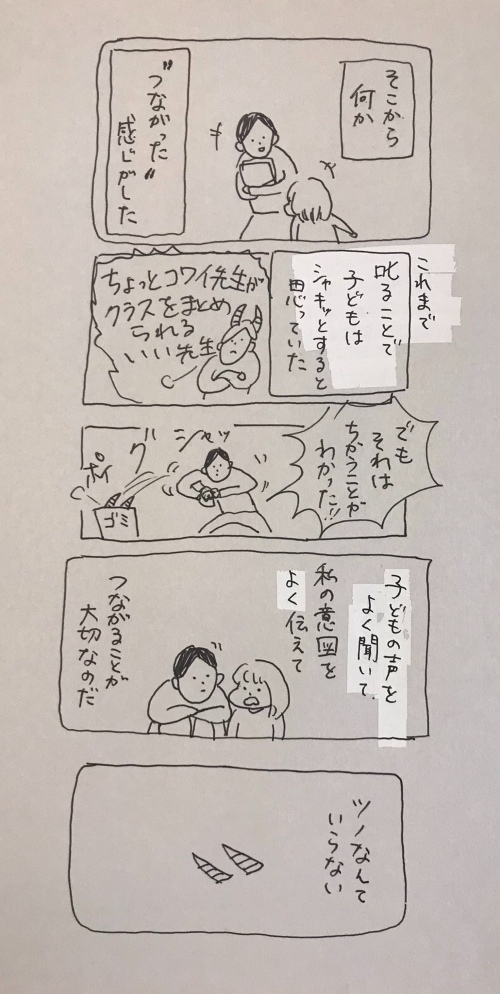 そこから
何か
"つながった"
感じがした
これまで
叱ることで
子どもは
シャキッとすると
思っていた
ちょっとコワイ先生が
クラスをまとめ
られる
いい先生
でも
それは
ちがうことが
わかった!!
シャッ
グ
ポイ
ゴミ
子どもの声を
よく聞いて、
私の意図を
よく伝えて
つながることが
大切なのだ
ツノなんて
いらない